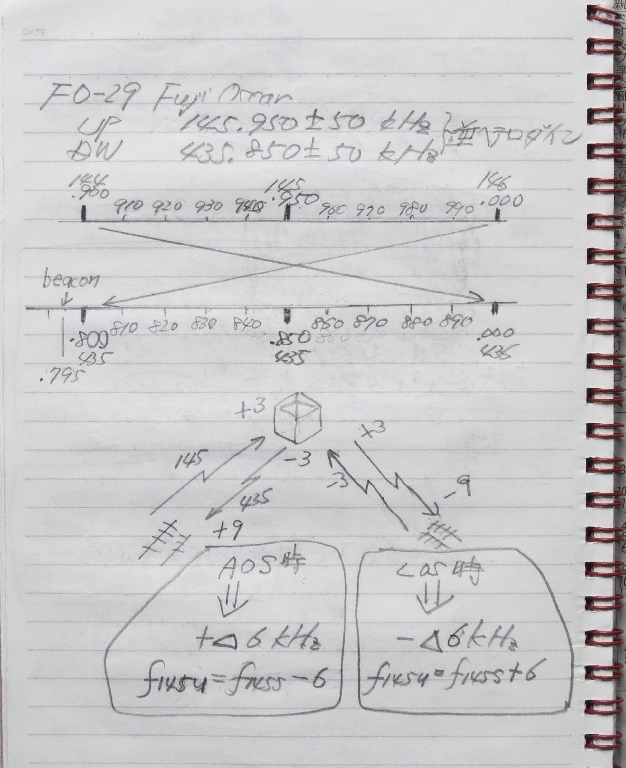 DATE
FO-29 Fuji Oscar
UP 145.950±50 kHz
DW 435.850±50 kHz } 逆ヘテロダイン
144 .900 910 920 930 940 145 .950 960 970 980 990 146 .000
beacon
.800 435 810 820 830 840 .850 435 860 870 880 890 .000 436
.795
+3
+3
145
-3
-3
435
-9
+9
AOS時
LOS時
⇓
⇓
+△6kHz
-△6kHz
f145u=f145s-6
f145u=f145s+6